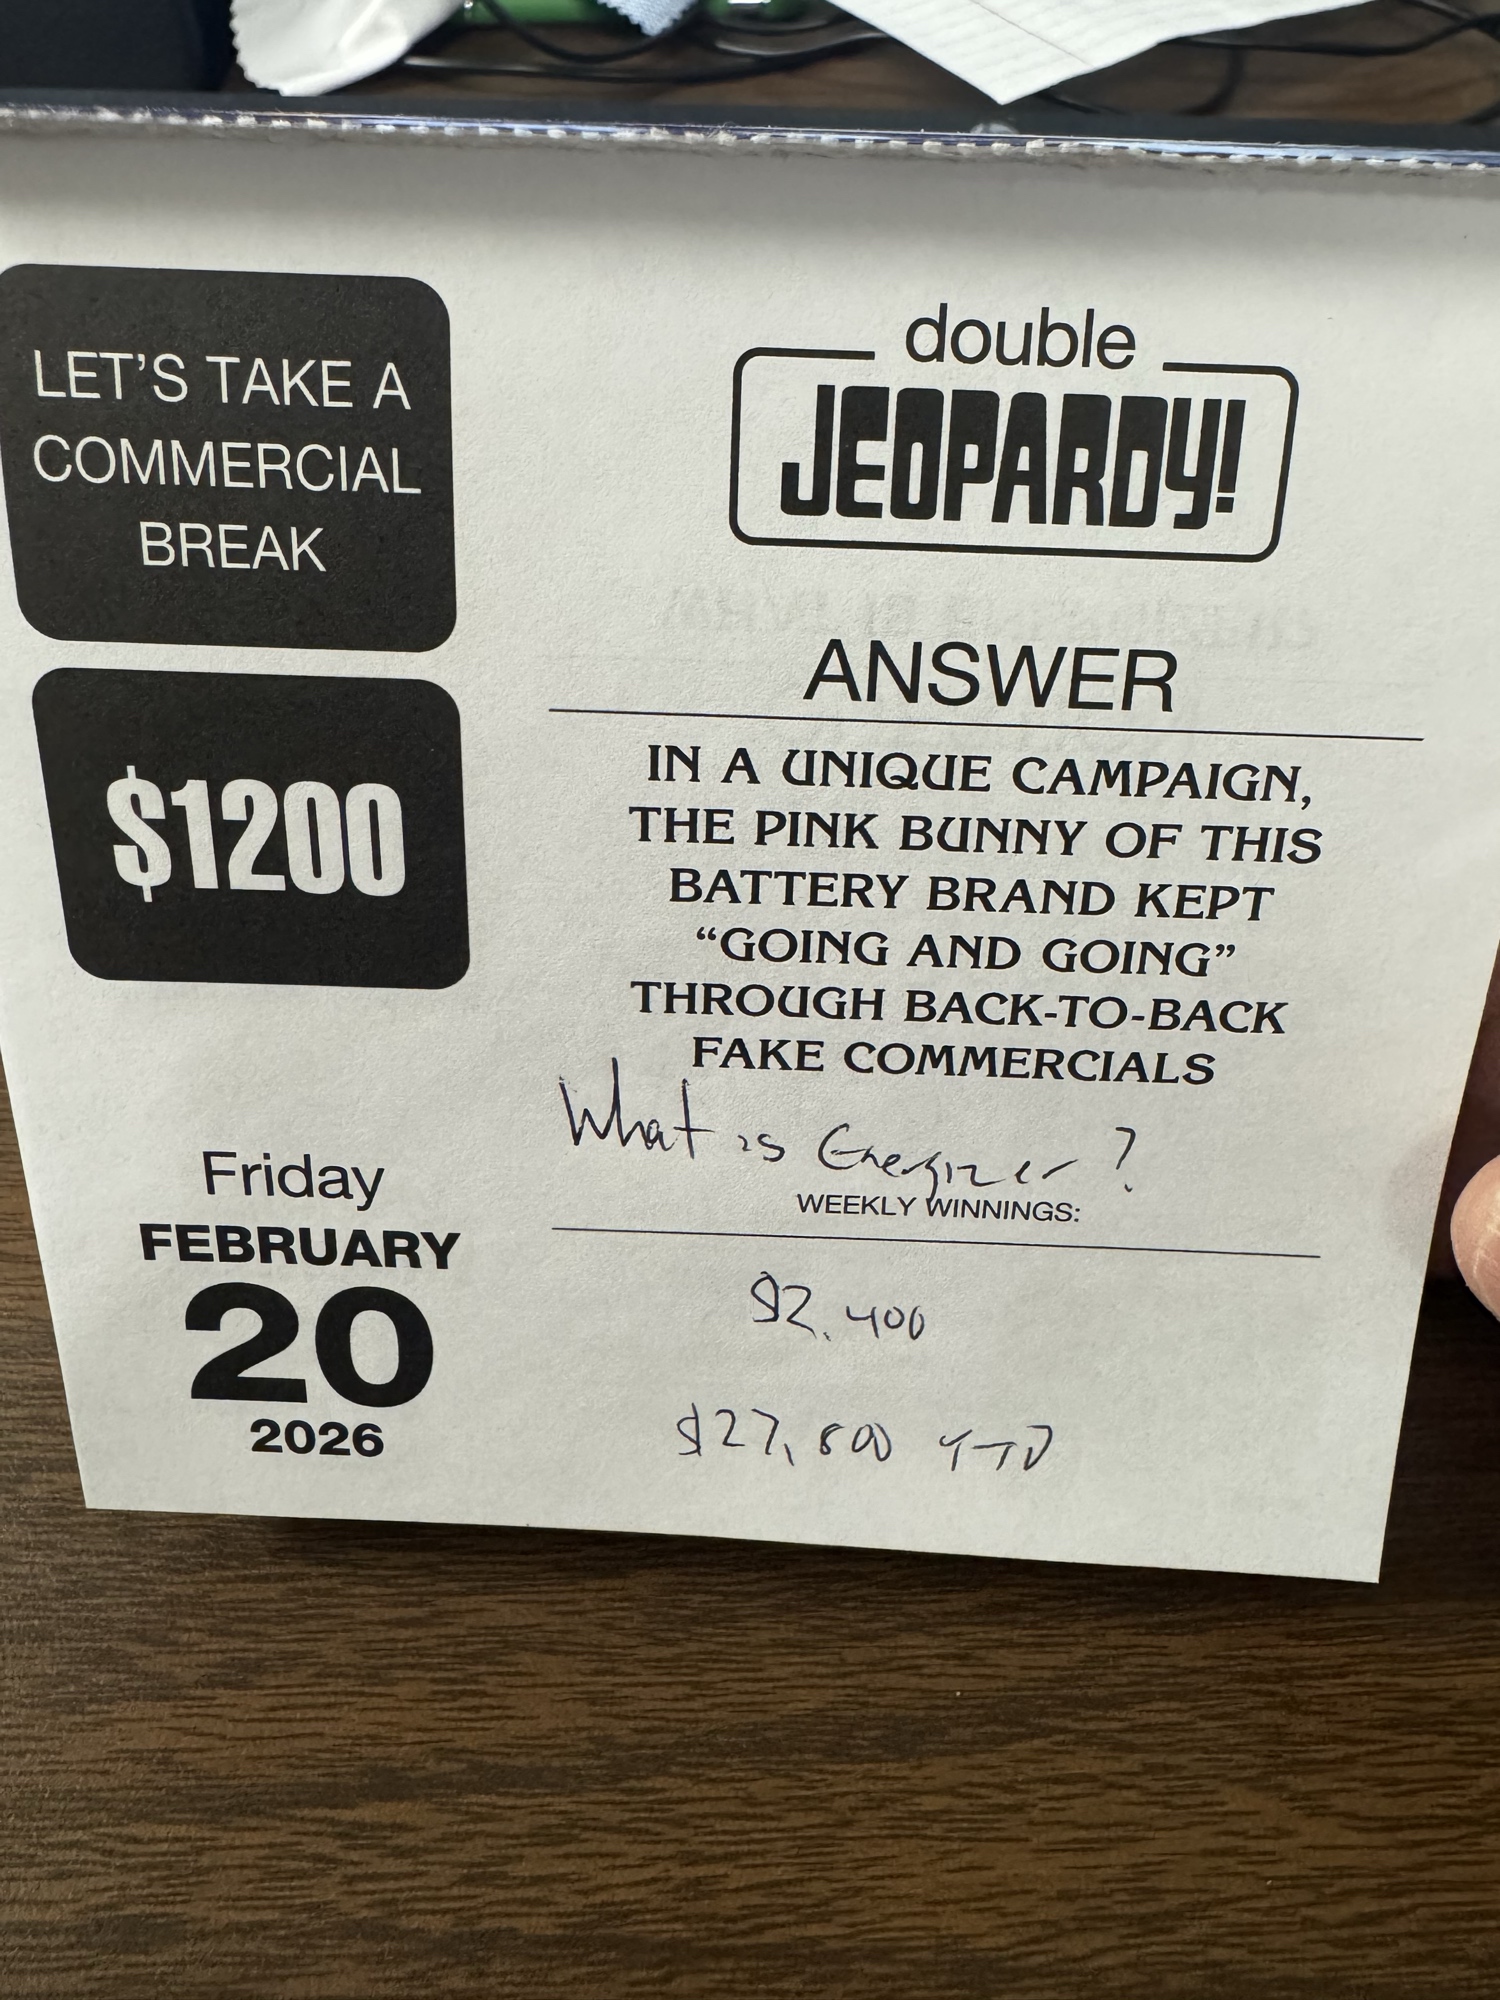 LET'S TAKE A
COMMERCIAL
BREAK
$1200
Friday
FEBRUARY
20
2026
double
JEOPARDY!
ANSWER
IN A UNIQUE CAMPAIGN,
THE PINK BUNNY OF THIS
BATTERY BRAND KEPT
“GOING AND GOING”
THROUGH BACK-TO-BACK
FAKE COMMERCIALS
What is Energizer?
WEEKLY WINNINGS:
$2,400
$27,800 YTD